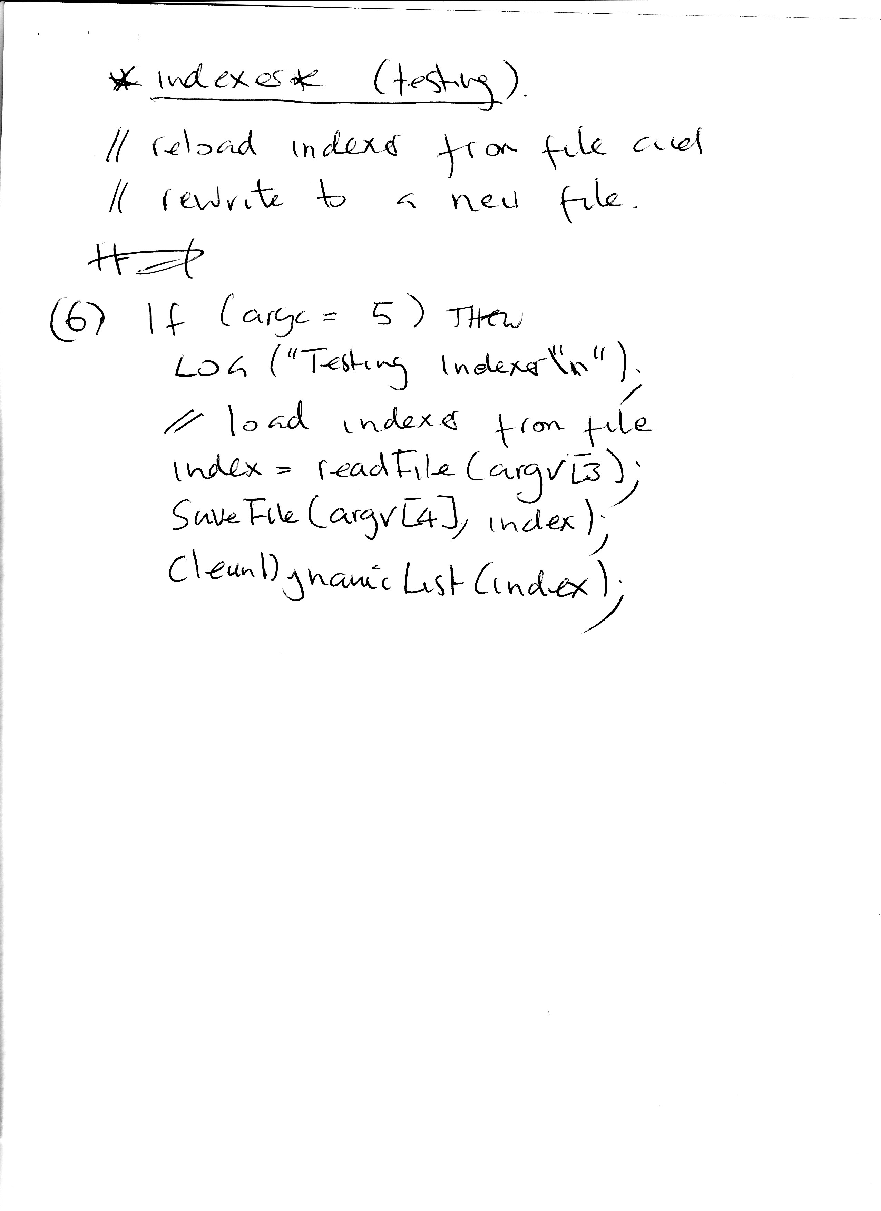 * indexes* (testing).
// reload indexes from file and
// rewrite to a new file.
(6) If (argc = 5) THEN
LOG ("Testing Indexes\n");
// load indexes from file
index = readFile (argv[3);
SaveFile (argv[4], index);
CleanDynamicList (index);